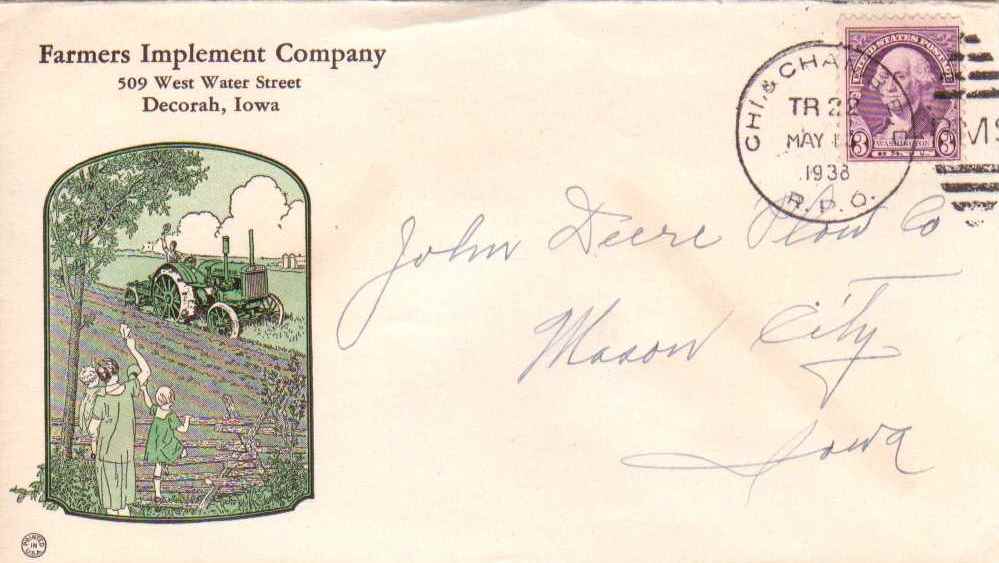 Farmers Implement Company
509 West Water Street
Decorah, Iowa
UNITED STATES POSTAGE
3 WASHINGTON 3
CHI. & CHA
TR 22
MAY
1938
R.P.O.
RMS
John Deere Plow Co
Mason City
Iowa
PRINTED
IN
U.S.A.